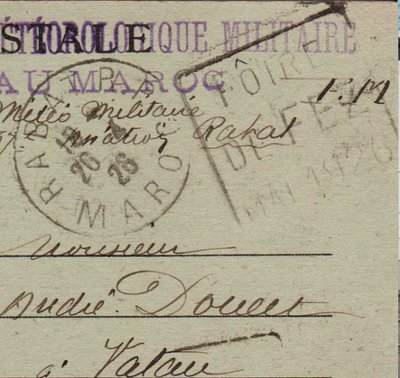 STALE
MÉTÉOROLOGIQUE MILITAIRE
AU MAROC
Météo Militaire
Aviation Rabat
RABAT RP
18
20 4
26
MAROC
FOIRE
DE FEZ
MAI 1926
Monsieur
André Doucet
à Vatan